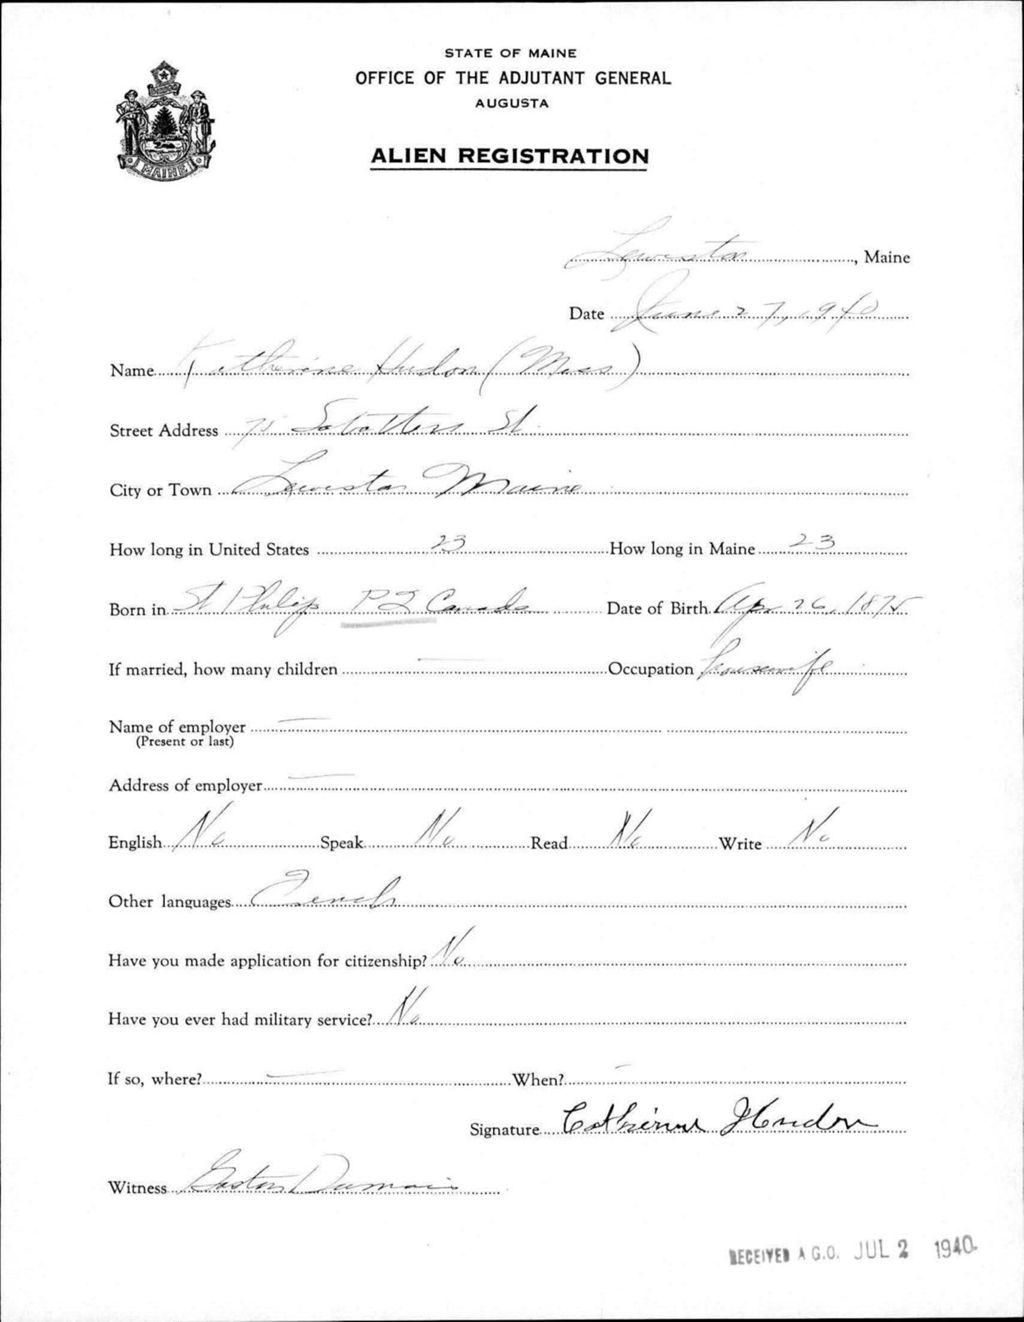 STATE OF MAINE
OFFICE OF THE ADJUTANT GENERAL
AUGUSTA
ALIEN REGISTRATION
MAINE
Lewiston, Maine
Date June 27, 1940
Name Katherine Hudon (Miss)
Street Address 75 Sabattus St.
City or Town Lewiston Maine
How long in United States 23 How long in Maine 23
Born in St Philip P2 Canada Date of Birth Apr 26, 1875
If married, how many children — Occupation housewife
Name of employer —
(Present or last)
Address of employer —
English No Speak No Read No Write No
Other languages French
Have you made application for citizenship? No
Have you ever had military service? No
If so, where? — When? —
Signature Catherine Hudon
Witness Gaston Dumais
RECEIVED A.G.O. JUL 2 1940